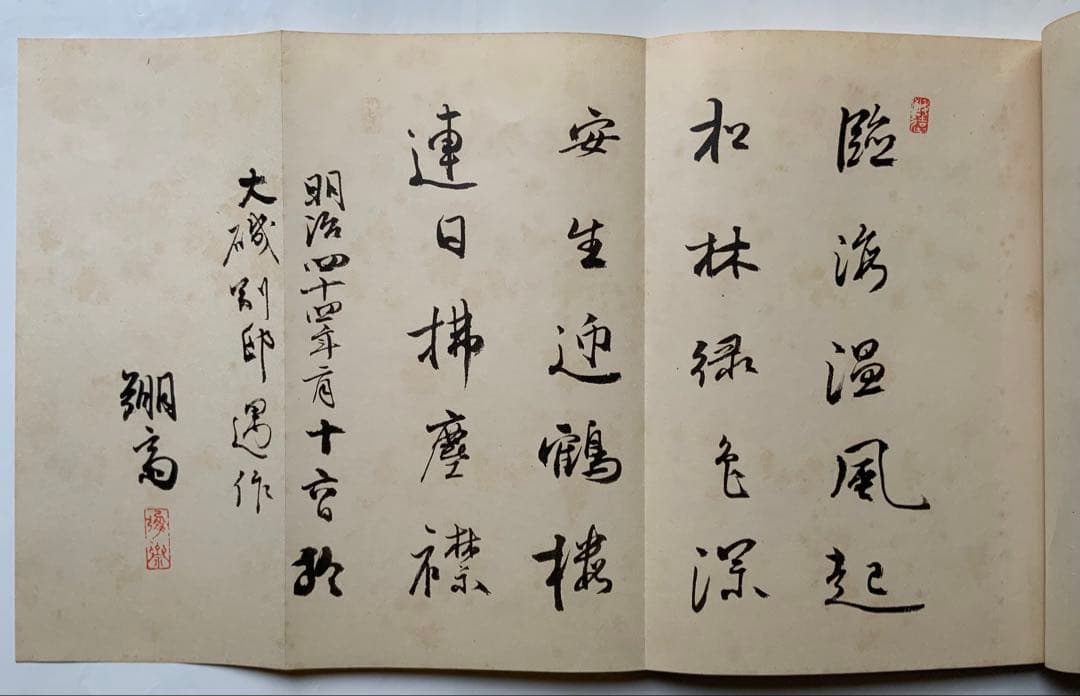 臨海温風起
松林緑色深
安生迎鶴楼
連日拂塵襟
明治四十四年二月十六日於
大磯別邸遇作